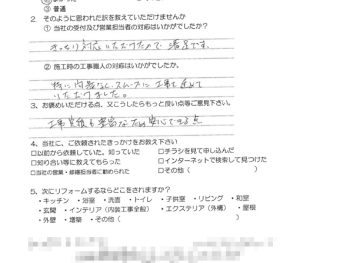 ③ 普通
2．そのように思われた訳を教えていただけませんか
① 当社の受付及び営業担当者の対応はいかがでしたか？
きっちり対応いただけたので満足です。
② 施工時の工事職人の対応はいかがでしたか。
特に問題なくスムーズに工事を進めて
いただけました。
3、お褒めいただける点、又こうしたらもっと良い点等ご意見下さい。
工事実績も豊富なため安心できる点
4、当社に、ご依頼されたきっかけをお教え下さい
□以前から依頼していた。知っていた □チラシを見て申し込んだ
□知り合い等に教えてもらった □インターネットで検索して見つけた
□当社の営業・修繕担当者に勧められた □その他（ ）
5、次にリフォームするならどこをされますか？
・キッチン ・浴室 ・洗面 ・トイレ ・子供室 ・リビング ・和室
・玄関 ・インテリア（内装工事全般） ・エクステリア（外構） ・屋根
・外壁 ・増築 ・その他（ ）